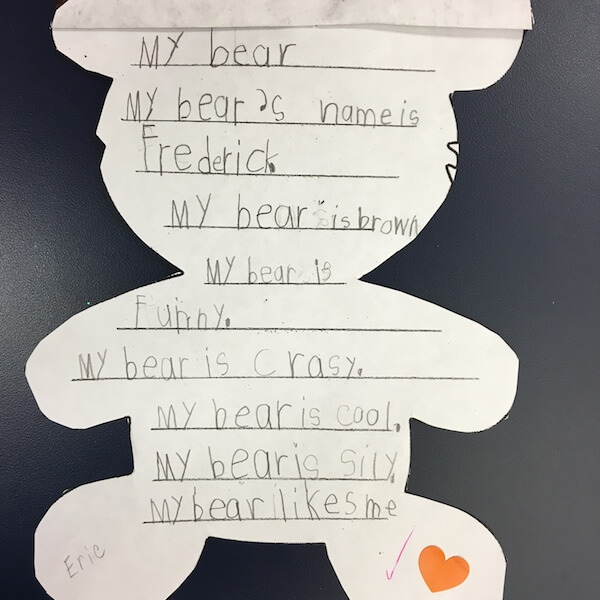 My bear
My bear's name is
Frederick
My bear is brown
My bear is
Funny.
My bear is Crasy.
My bear is cool.
My bear is Sily.
My bear likes me
Eric